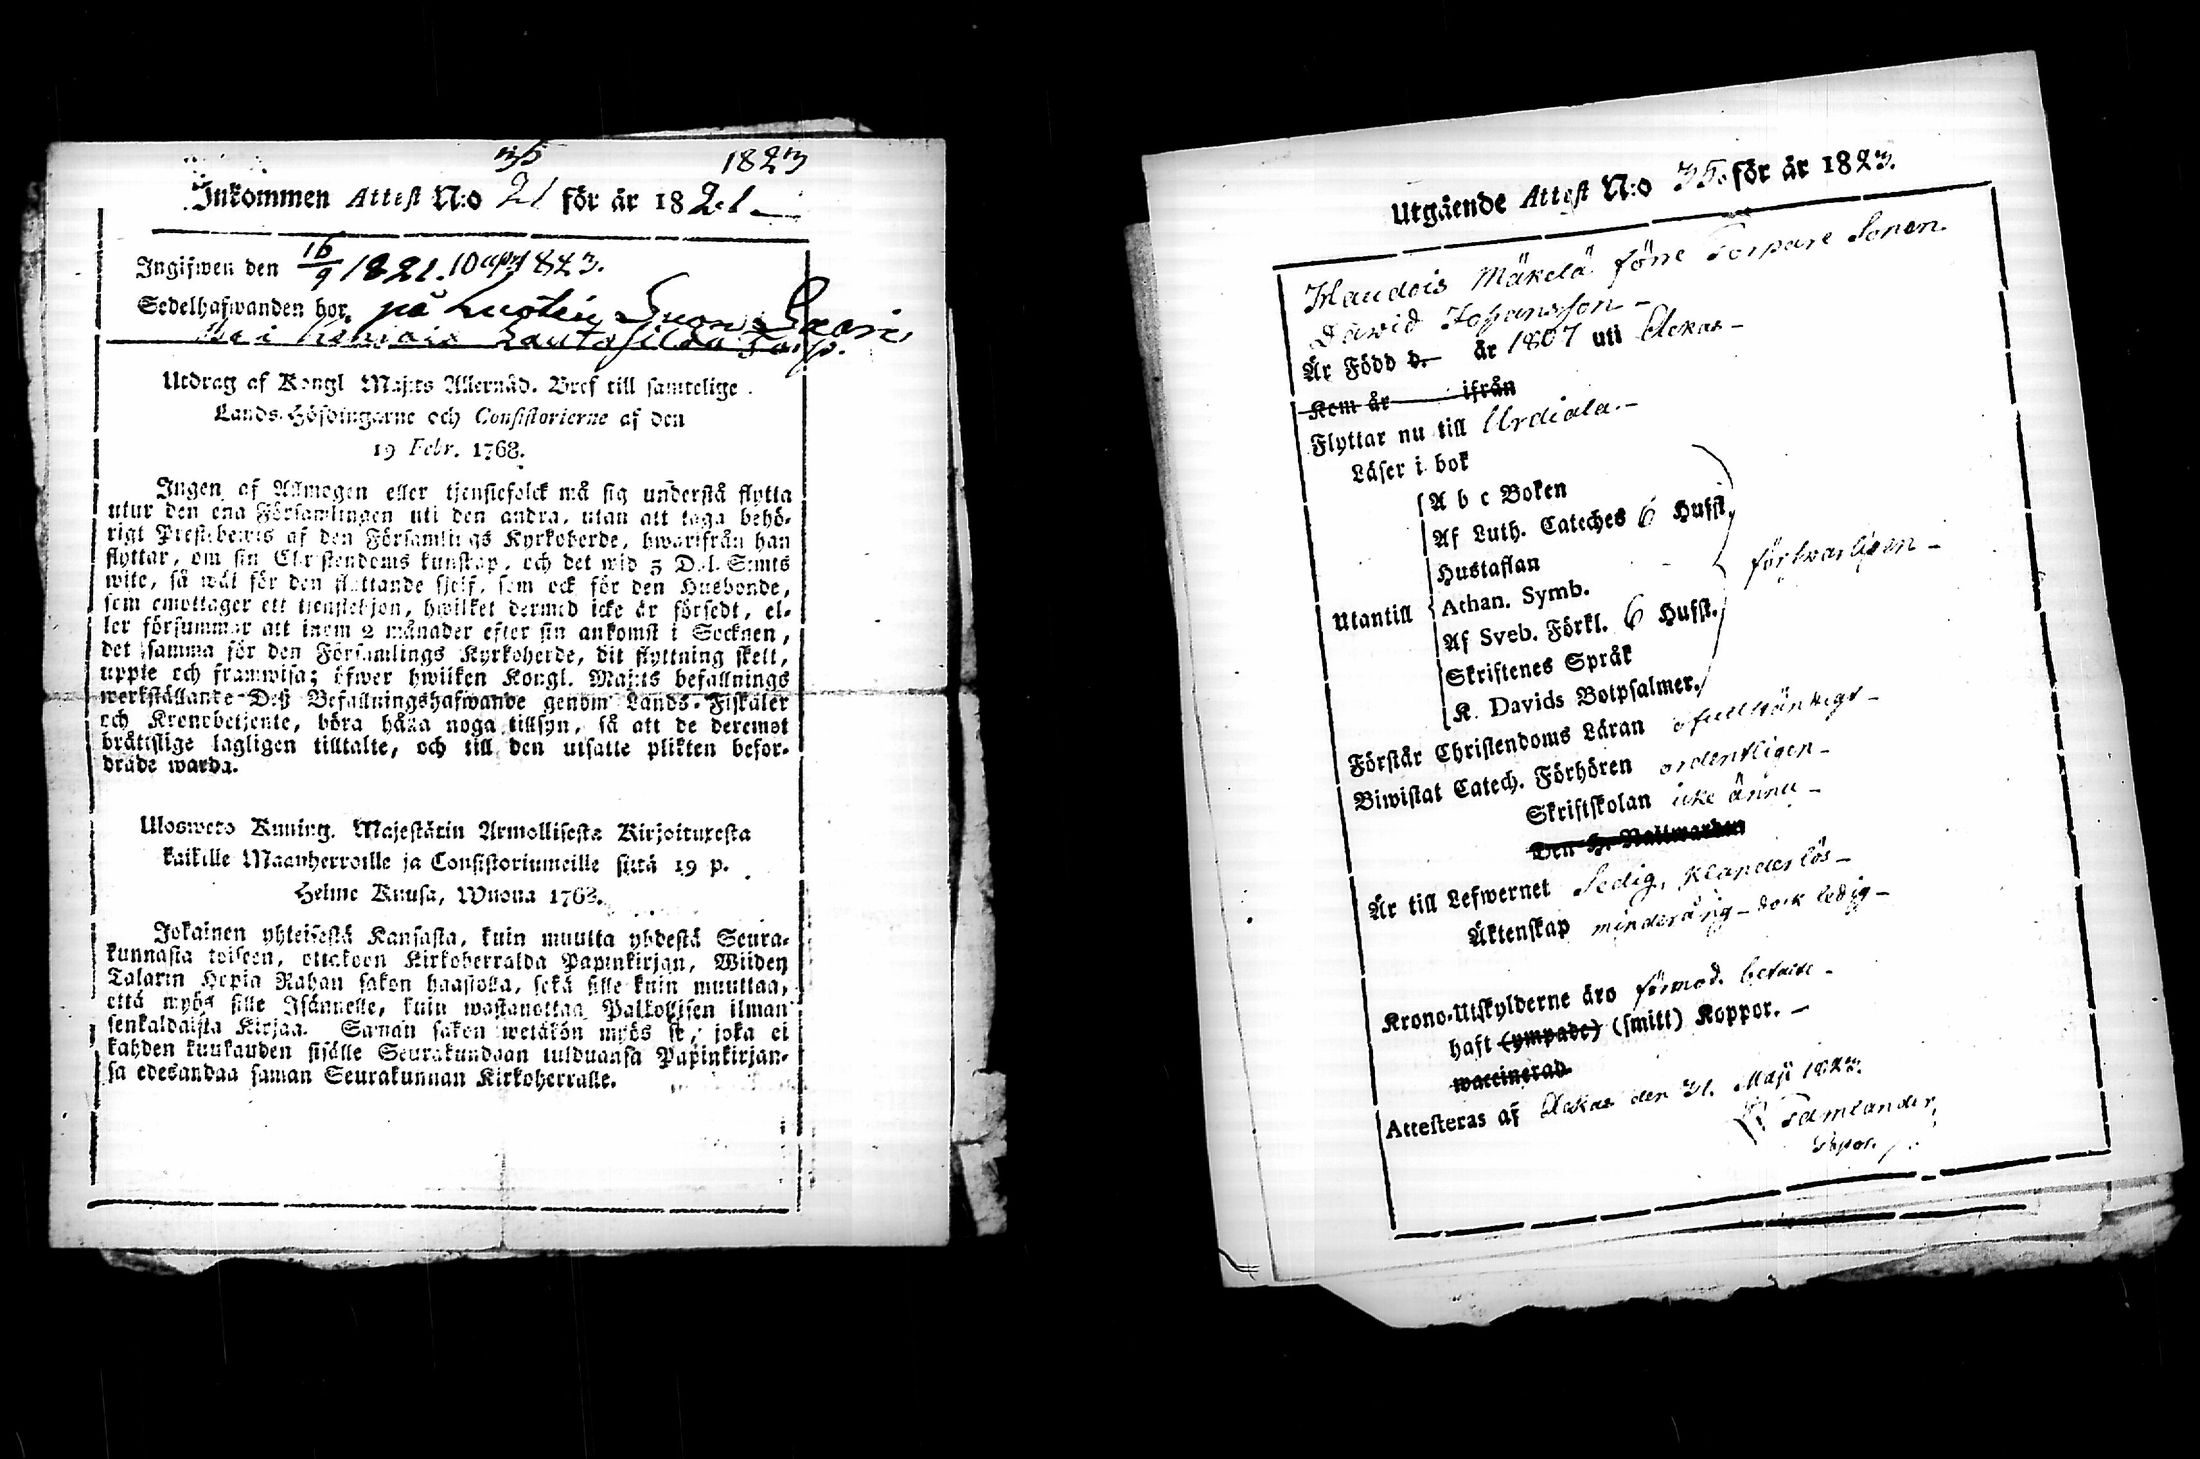 35 1823
Inkommen Attest N:o 21 för år 1821.
Ingifwen den 16/9 1821. 1823.
Sedelhafwanden hor. på
Utdrag af Kongl Maj:ts Allernåd. Bref till samtelige
Lands-Höfdingarne och Consistorierne af den
19 Febr. 1768.
Ingen af Allmogen eller tjenstefolck må sig understå flytta
utur den ena Församlingen uti den andra, utan att taga behö-
rigt Prestebewis af den Församlings Kyrkoherde, hwarifrån han
flyttar, om sin Christendoms kunskap, och det wid 5 Dal. Smts
wite, så wäl för den flyttande sjelf, som ock för den Husbonde,
som emottager ett tjenstehjon, hwilket dermed icke är försedt, el-
ler försummar att inom 2 månader efter sin ankomst i Socknen,
det samma för den Församlings Kyrkoherde, dit flyttning skett,
uppte och framwisa; öfwer hwilken Kongl. Maj:ts befallnings
werkställande Deß Befallningshafwande genom Lands-Fiskaler
och Kronobetjente, böra hålla noga tillsyn, så att de deremot
bråttslige lagligen tilltalte, och till den utsatte plikten befor-
drade warda.
Uloswero Kuning. Majestätin Armollisesta Kirjoituxesta
kaikille Maanherroille ja Consistoriumeille siitä 19 p.
Helme Kuusa, Wuona 1768.
Jokainen yhteisestä Kansasta, kuin muutta yhdestä Seura-
kunnasta toiseen, ottakoon Kirkoherralda Papinkirjan, Wiiden
Talarin Hopia Rahan sakon haastolla, sekä sille kuin muuttaa,
että myös sille Isännelle, kuin wastanottaa Palkollisen ilman
senkaldaista Kirjaa. Saman sakon wetäkön myös se, joka ei
kahden kuukauden sisälle Seurakundaan tulduansa Papinkirjan-
sa edesandaa saman Seurakunnan Kirkoherralle.
Utgående Attest N:o 35. för år 1823.
Mäkelä förre Torpare Sonen
David Johansson
Är Född d. år 1807 uti Ackas
Kom år ifrån
Flyttar nu till Urdiala.
Läser i bok
A b c Boken
Af Luth. Cateches 6 Hufst.
Hustaflan
Utantill Athan. Symb. försvarligen
Af Sveb. Förkl. 6 Hufst.
Skriftenes Språk
K. Davids Botpsalmer.
Förstår Christendoms Läran ofullständigt
Biwistat Catech. Förhören ordentligen
Skriftskolan icke ännu
Den H. Nattwarden
Är till Lefwernet Sedig, klanderlös
Äktenskap minderårig dock ledig
Krono-Utskylderne äro förmod. betalte
haft (ympade) (smitt) Koppor.
waccinerad
Attesteras af Ackas den 31. Maji 1823.